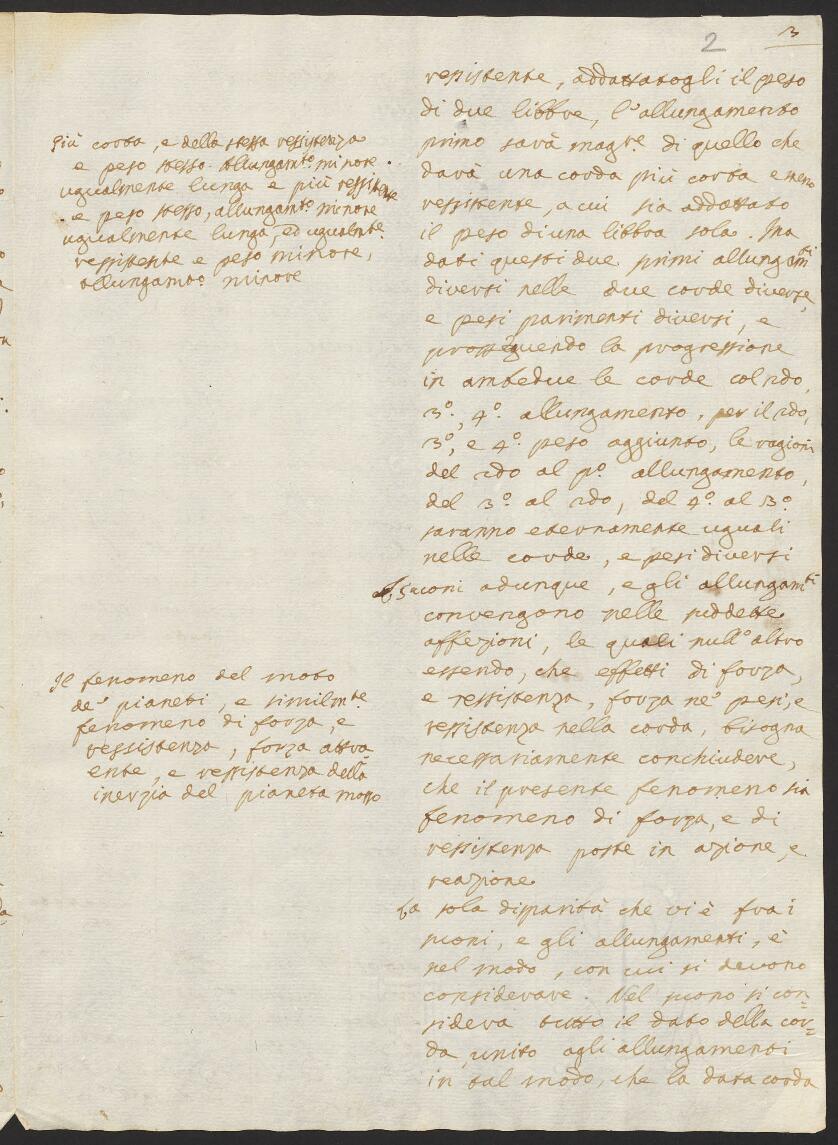 2 3
ressistente, addattatogli il peso
di due libbre, l'allungamento
primo sarà magre. di quello che
darà una corda più corta e meno
ressistente, a cui sia addattato
il peso di una libbra sola. Ma
dati questi due primi allungamti
diversi nelle due corde diverse,
e pesi parimenti diversi, e
prosseguendo la progressione
in ambedue le corde col 2do,
3o., 4o. allungamento, per il 2do,
3o, e 4o. peso aggiunto, le ragioni
del 2do al po. allungamento,
del 3o. al 2do, del 4o. al 3o.
saranno eternamente uguali
nelle corde, e pesi diversi
I suoni adunque, e gli allungamti
convengono nelle suddette
affezioni, le quali null'altro
essendo, che effetti di forza,
e ressistenza, forza ne' pesi, e
ressistenza nella corda, bisogna
necessariamente conchiudere,
che il presente fenomeno sia
fenomeno di forza, e di
ressistenza poste in azione, e
reazione
La sola disparità che vi è fra i
suoni, e gli allungamenti, è
nel modo, con cui si devono
considerare. Nel suono si con=
sidera tutto il dato della cor=
da unito agli allungamenti
in tal modo, che la data corda
Più corta, e della stessa ressistenza
e peso stesso allungamto. minore.
ugualmente lunga e più ressistente
e peso stesso, allungamto. minore
ugualmente lunga, ed ugualmte.
ressistente e peso minore,
allungamto minore
Il fenomeno del moto
de' pianeti, e similmte.
fenomeno di forza, e
ressistenza, forza attra=
ente, e ressistenza della
inerzia del pianeta mosso